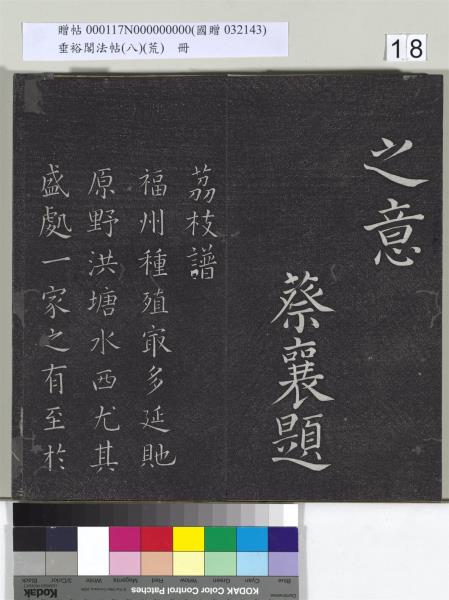 贈帖 000117N000000000(國贈 032143)
垂裕閣法帖(八)(荒) 冊
18
之意
蔡襄題
荔枝譜
福州種殖㝡多延貤
原野洪塘水西尤其
盛處一家之有至於
Blue
Cyan
Green
Yellow
Red
Magenta
White
3/Color
Black
Kodak
KODAK Color Control Patches